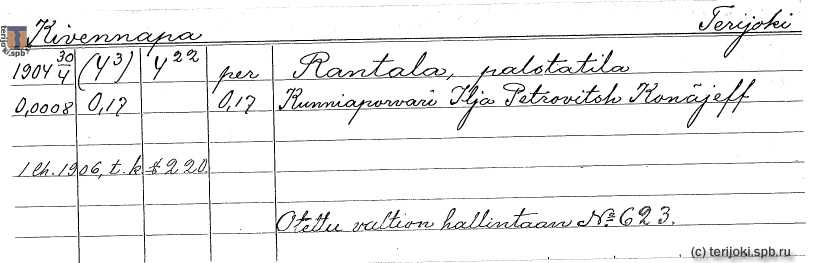 Kivennapa Terijoki
1904 30/4 (4³) 4²² per Rantala, palstatila
0,0008 0,17 0,17 Kunniaporvari Ilja Petrovitsh Konäjeff
1 lh. 1906, t. k. § 220.
Otettu valtion hallintaan № 623.
(c) terijoki.spb.ru